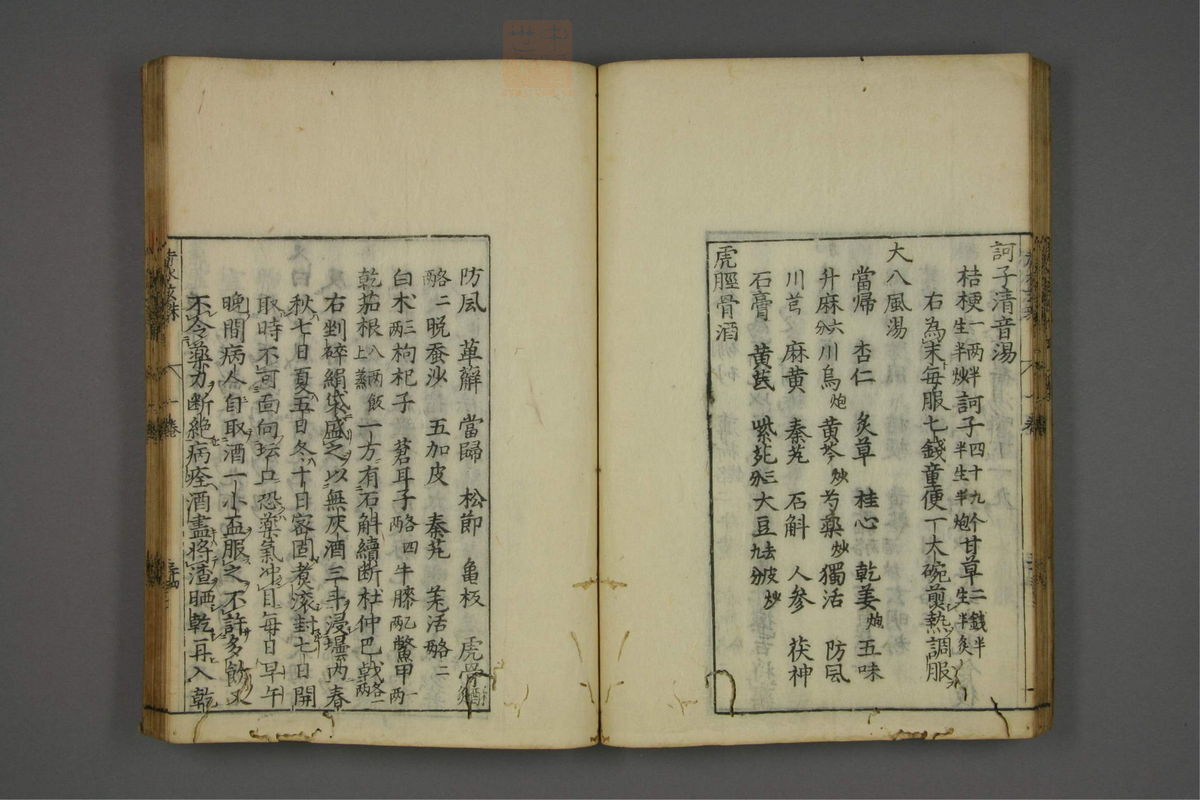 訶子清音湯
桔梗一兩半生半炒訶子四十九个半生半炮甘草二錢半生半炙
右為末每服七錢童便一大碗煎熱調服
大八風湯
當歸 杏仁 炙草 桂心 乾姜炮五味
升麻六分川烏炮黄芩炒芍藥炒獨活 防風
川芎 麻黄 秦艽 石斛 人參 茯神
石膏 黄芪 紫菀三分大豆去皮炒九分
虎脛骨酒
防風 萆薢 當歸 松節 亀板 虎骨
各二晩蚕沙 五加皮 秦艽 羌活各二
白朮三兩枸杞子 蒼耳子各四牛膝兩鱉甲一兩
乾茄根八兩飯上蒸一方有石斛續断杜仲巴戟各一兩
右剉碎絹袋盛之以無灰酒三斗浸壜内春
秋七日夏五日冬十日密固煮滚封七日開
取時不可面向坛口恐藥氣冲目每日早午
晩間病人自取酒一小盃服之不許多飲
不令藥力断絶病痊酒盡将渣晒乾再入乾